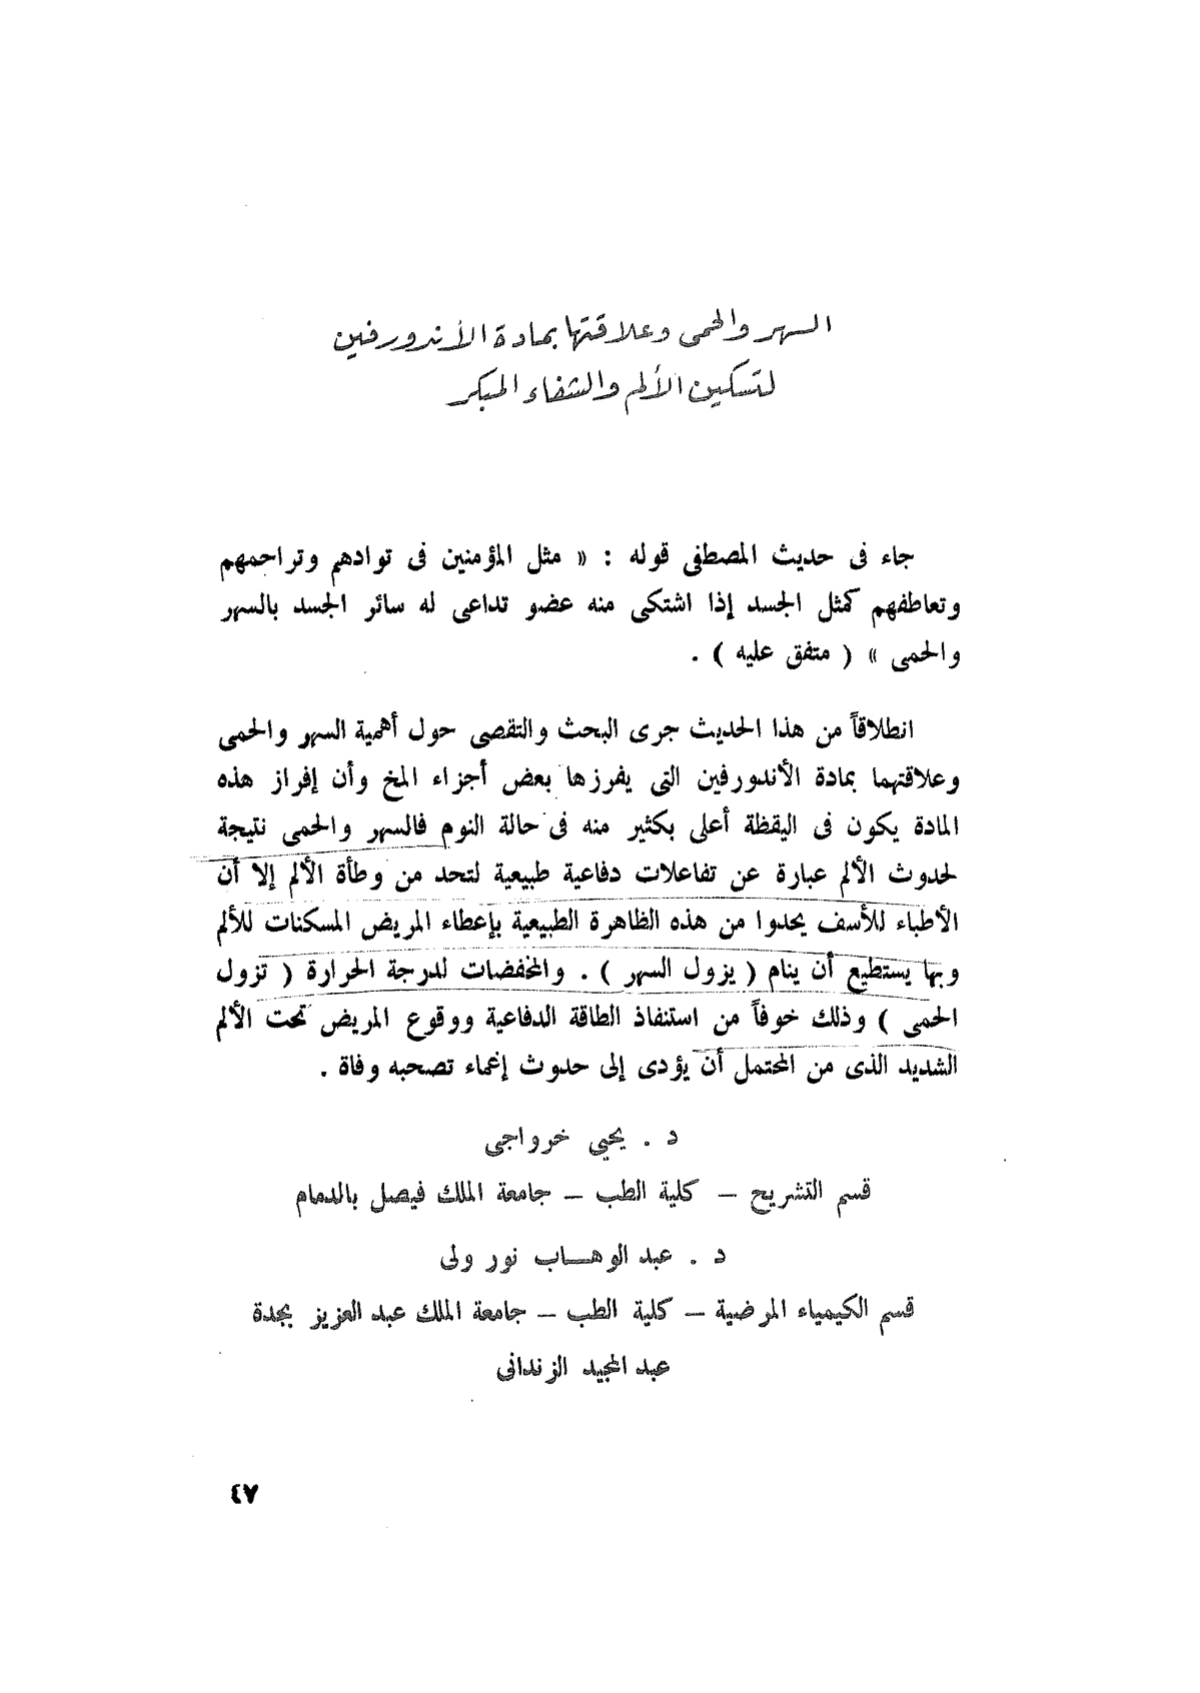 السهر والحمى وعلاقتها بمادة الأندورفين
لتسكين الألم والشفاء المبكر
جاء فى حديث المصطفى قوله : « مثل المؤمنين فى توادهم وتراحمهم
وتعاطفهم كمثل الجسد إذا اشتكى منه عضو تداعى له سائر الجسد بالسهر
والحمى » ( متفق عليه ) .
انطلاقاً من هذا الحديث جرى البحث والتقصى حول أهمية السهر والحمى
وعلاقتهما بمادة الأندورفين التى يفرزها بعض أجزاء المخ وأن إفراز هذه
المادة يكون فى اليقظة أعلى بكثير منه فى حالة النوم فالسهر والحمى نتيجة
لحدوث الألم عبارة عن تفاعلات دفاعية طبيعية لتحد من وطأة الألم إلا أن
الأطباء للأسف يحدوا من هذه الظاهرة الطبيعية بإعطاء المريض المسكنات للألم
وبها يستطيع أن ينام ( يزول السهر ) . والمخفضات لدرجة الحرارة ( تزول
الحمى ) وذلك خوفاً من استنفاذ الطاقة الدفاعية ووقوع المريض تحت الألم
الشديد الذى من المحتمل أن يؤدى إلى حدوث إغماء تصحبه وفاة .
د . يحيي خرواجى
قسم التشريح – كلية الطب – جامعة الملك فيصل بالدمام
د . عبد الوهـاب نور ولى
قسم الكيمياء المرضية – كلية الطب – جامعة الملك عبد العزيز بجدة
عبد المجيد الزندانى
٤٧